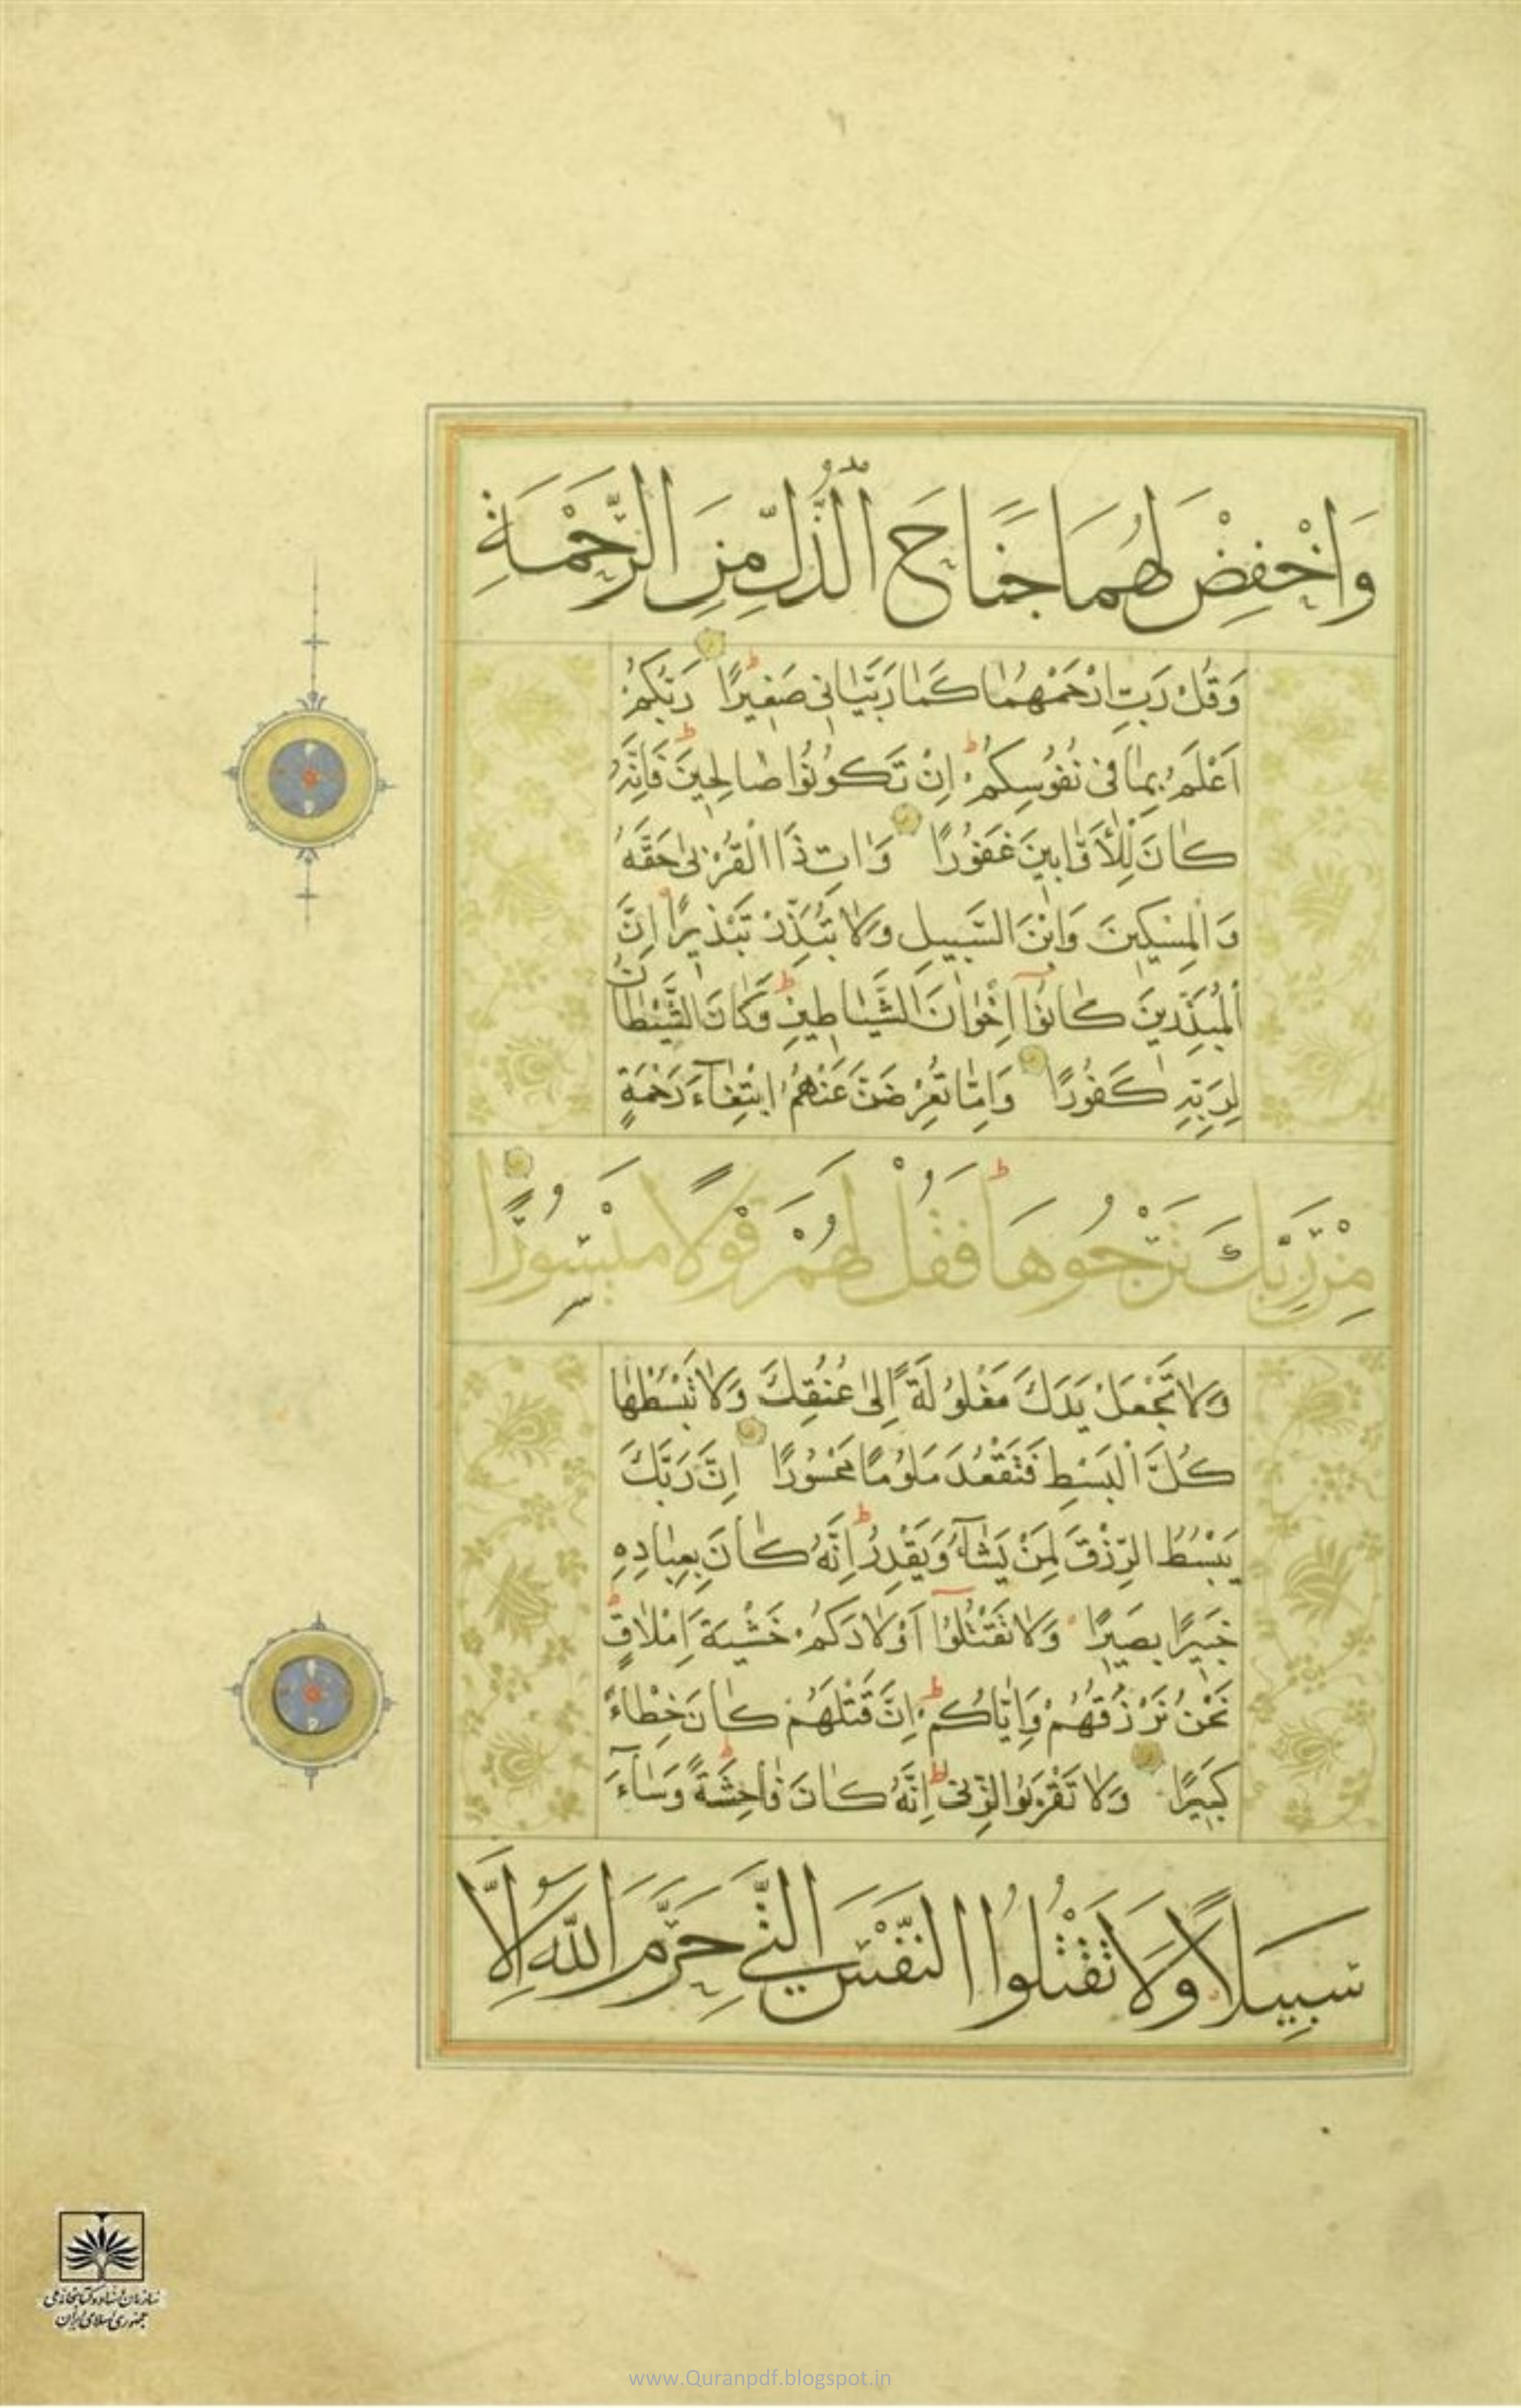 وَاخْفِضْ لَهُمَا جَنَاحَ الذُّلِّ مِنَ الرَّحْمَةِ
وَقُلْ رَبِّ ارْحَمْهُمَا كَمَا رَبَّيَانِي صَغِيرًا رَبُّكُمْ
اَعْلَمُ بِمَا فِي نُفُوسِكُمْ ط اِنْ تَكُونُوا صَالِحِينَ فَاِنَّهُ
كَانَ لِلْاَوَّابِينَ غَفُورًا وَاٰتِ ذَا الْقُرْبىٰ حَقَّهُ
وَالْمِسْكِينَ وَابْنَ السَّبِيلِ وَلَا تُبَذِّرْ تَبْذِيرًا اِنَّ
الْمُبَذِّرِينَ كَانُوٓا اِخْوَانَ الشَّيَاطِينِ ط وَكَانَ الشَّيْطَانُ
لِرَبِّهِ كَفُورًا وَاِمَّا تُعْرِضَنَّ عَنْهُمُ ابْتِغَآءَ رَحْمَةٍ
مِنْ رَبِّكَ تَرْجُوهَا فَقُلْ لَهُمْ قَوْلًا مَيْسُورًا
وَلَا تَجْعَلْ يَدَكَ مَغْلُولَةً اِلىٰ عُنُقِكَ وَلَا تَبْسُطْهَا
كُلَّ الْبَسْطِ فَتَقْعُدَ مَلُومًا مَحْسُورًا اِنَّ رَبَّكَ
يَبْسُطُ الرِّزْقَ لِمَنْ يَشَآءُ وَيَقْدِرُ ط اِنَّهُ كَانَ بِعِبَادِهِ
خَبِيرًا بَصِيرًا وَلَا تَقْتُلُوٓا اَوْلَادَكُمْ خَشْيَةَ اِمْلَاقٍ ط
نَحْنُ نَرْزُقُهُمْ وَاِيَّاكُمْ ط اِنَّ قَتْلَهُمْ كَانَ خِطْاءً
كَبِيرًا وَلَا تَقْرَبُوا الزِّنىٰ اِنَّهُ كَانَ فَاحِشَةً ط وَسَآءَ
سَبِيلًا وَلَا تَقْتُلُوا النَّفْسَ الَّتِي حَرَّمَ اللّٰهُ اِلَّا
سازمان اسناد و کتابخانه ملی
جمهوری اسلامی ایران
www.Quranpdf.blogspot.in